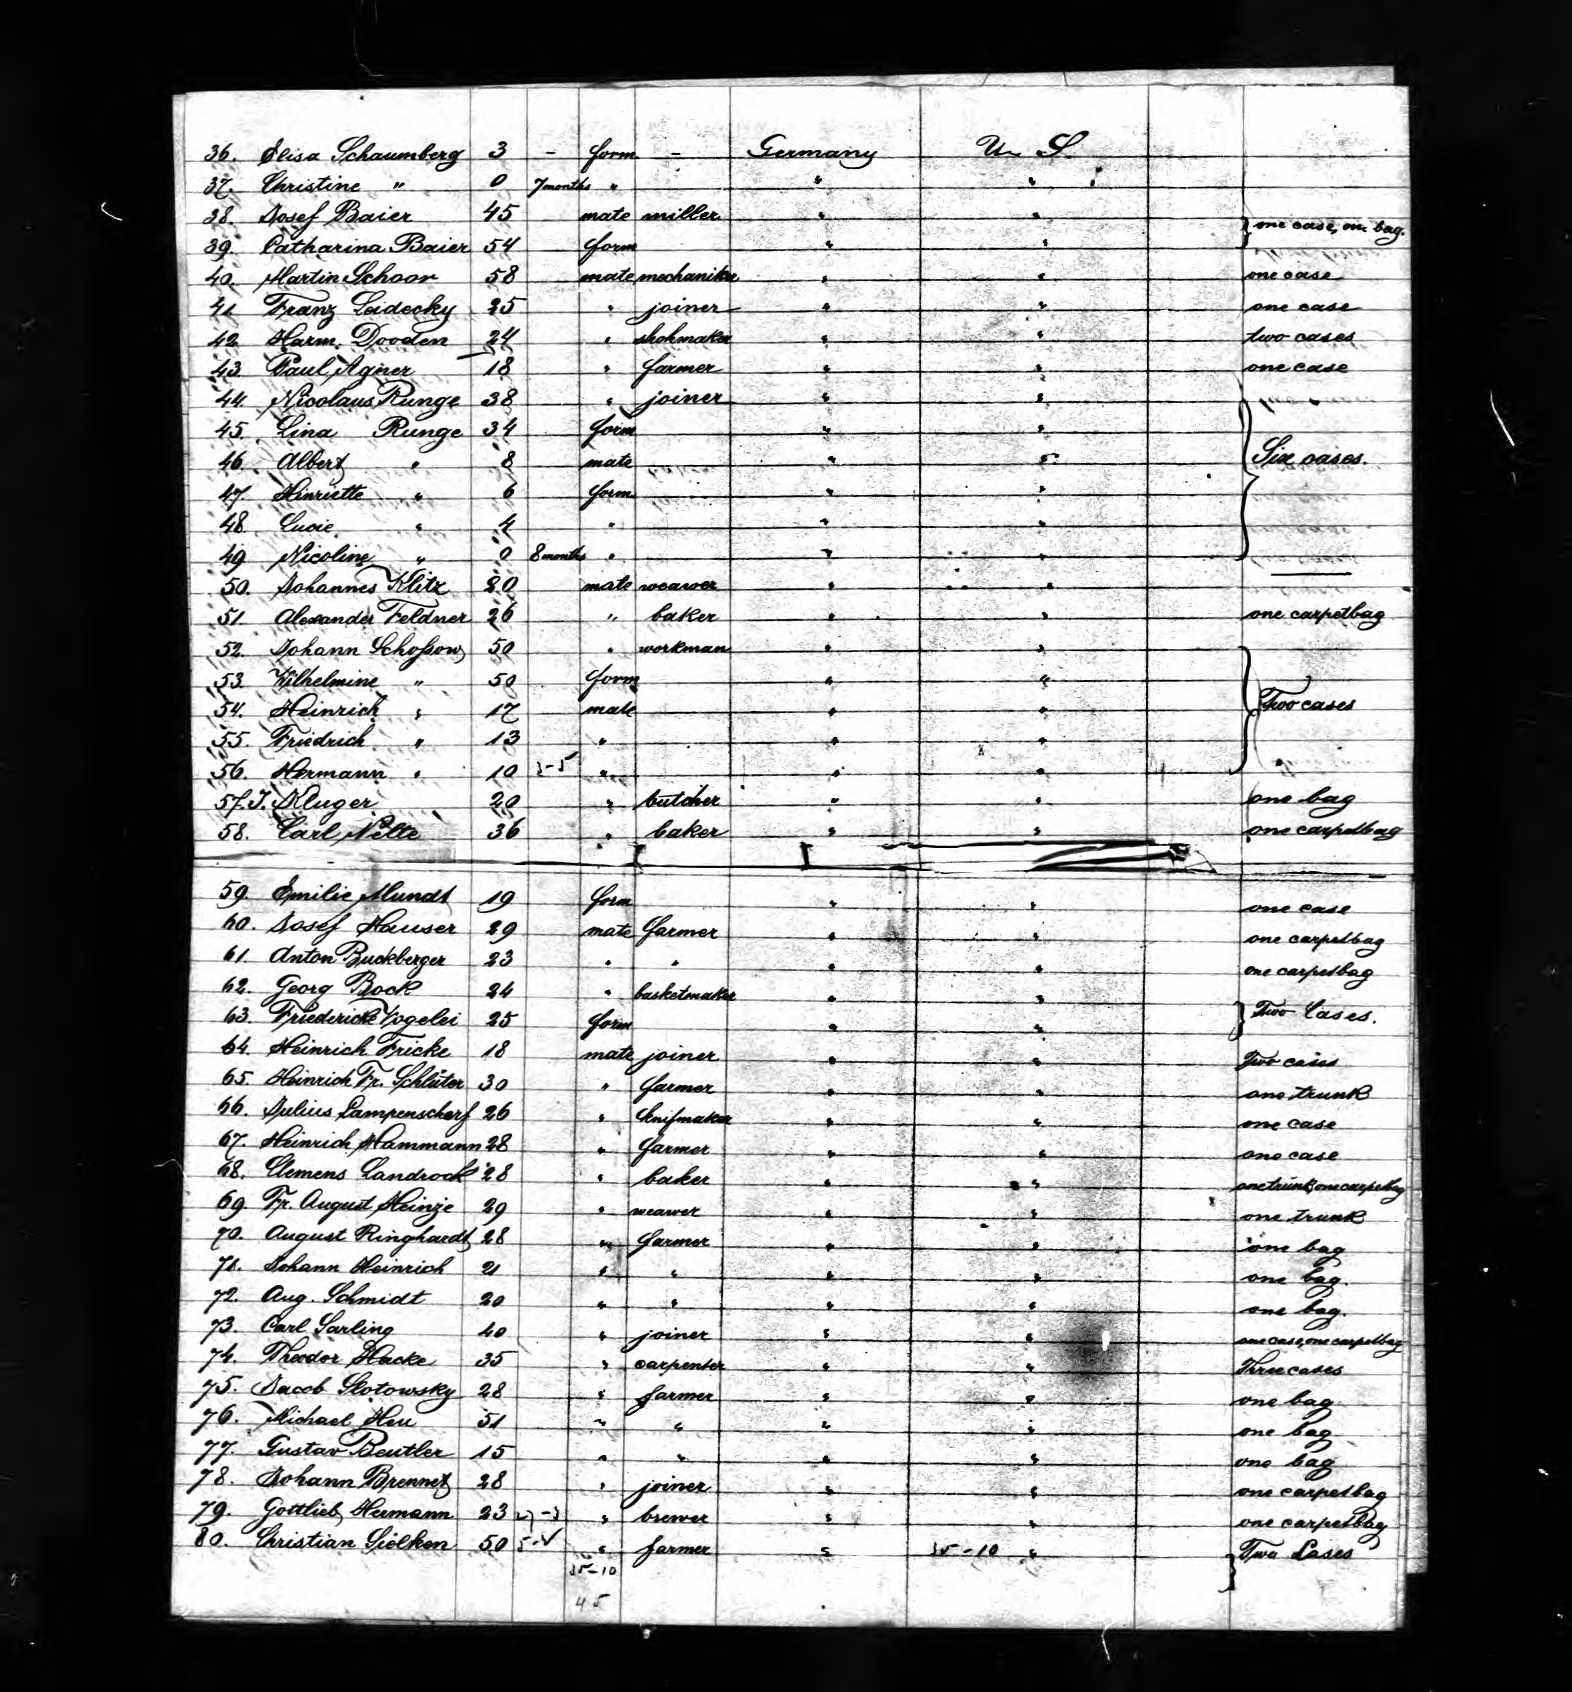 36. Elisa Schaumberg 3 - form - Germany U. S.
37. Christine " 0 7 months " " "
38. Josef Baier 45 mate miller " "
one case, one bag.
39. Catharina Baier 54 form " "
40. Martin Schoor 58 mate mechaniker " " one case
41. Franz Leidecky 25 " joiner " " one case
42. Harm. Dooden 24 " shohmaker " " two cases
43. Paul Agner 18 " farmer " " one case
44. Nicolaus Runge 38 " joiner " "
45. Lina Runge 34 form " "
46. Albert " 8 mate " " Six cases.
47. Hinriette " 6 form " "
48. Lucie " 4 " " "
49. Nicoline " 0 8 months " " "
50. Johannes Klitz 20 mate weawer " "
51. Alexander Feldner 26 " baker " " one carpetbag
52. Johann Schossow 50 " workman " "
53. Wilhelmine " 50 form " "
54. Heinrich " 17 mate " " Two cases
55. Friedrich " 13 " " "
56. Hermann " 10 " " "
57. J. Kluger 20 " butcher " " one bag
58. Carl Nelte 36 " baker " " one carpetbag
59. Emilie Mundt 19 form " " one case
60. Josef Hauser 29 mate farmer " " one carpetbag
61. Anton Buckberger 23 " " " " one carpetbag
62. Georg Bock 24 " basketmaker " "
Two Cases.
63. Friedericke Vogelei 25 form " "
64. Heinrich Fricke 18 mate joiner " " Two cases
65. Heinrich Fr. Schlüter 30 " farmer " " one trunk
66. Julius Lampenscherf 26 " knifmaker " " one case
67. Heinrich Hammann 28 " farmer " " one case
68. Clemens Landrock 28 " baker " " one trunk, one carpetbag
69. Fr. August Heinze 29 " weawer " " one trunk
70. August Ringhardt 28 " farmer " " one bag
71. Johann Heinrich 21 " " " " one bag.
72. Aug. Schmidt 20 " " " " one bag.
73. Carl Sarling 40 " joiner " " one case, one carpetbag
74. Theodor Hacke 35 " carpenter " " Three cases
75. Jacob Slotowsky 28 " farmer " " one bag
76. Michael Heu 51 " " " " one bag
77. Gustav Beutler 15 " " " " one bag
78. Johann Brennet 28 " joiner " " one carpetbag
79. Gottlieb Hermann 23 " brewer " " one carpetbag
80. Christian Sielken 50 " farmer " 35-10 " Two Cases
35-10
45